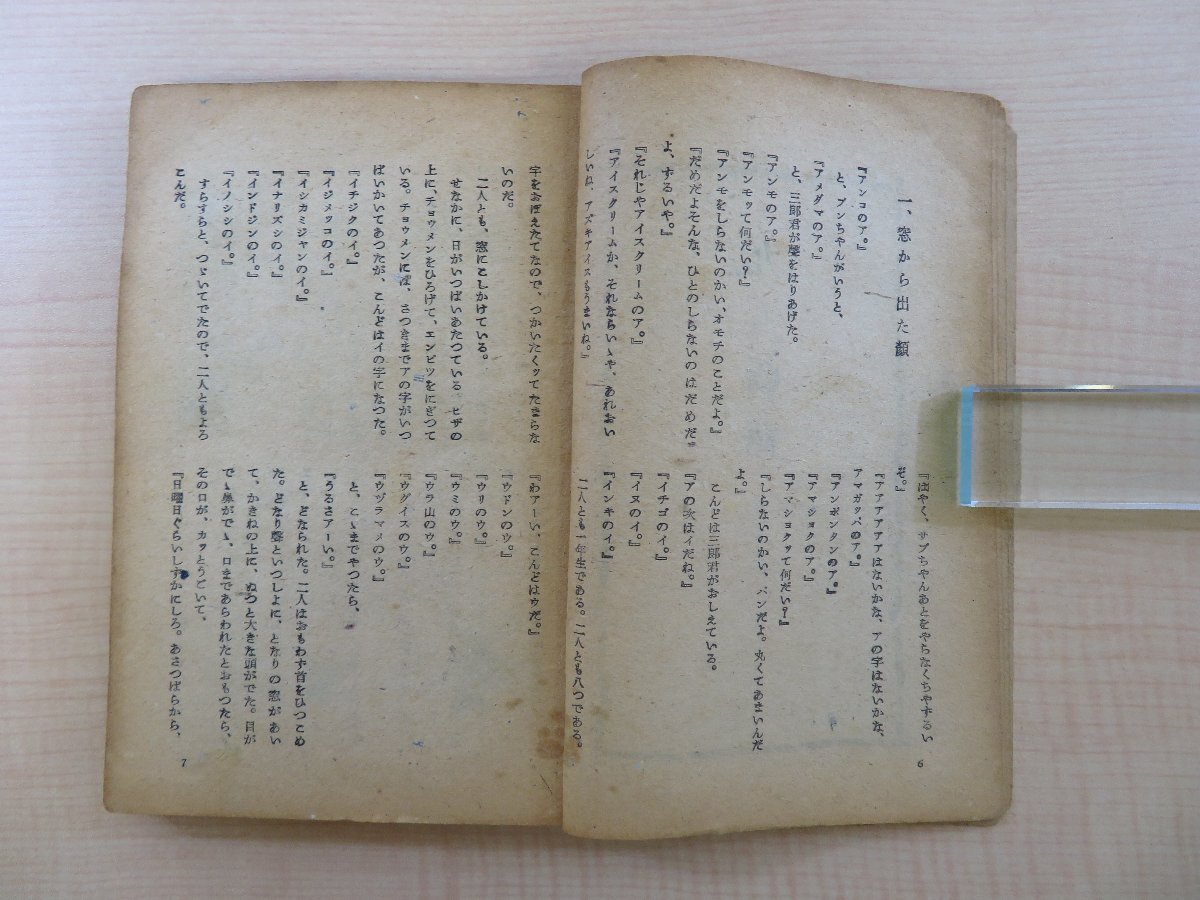 一、窓から出た顏
『アンコのア。』
と、ブンちやんがいうと、
『アメダマのア。』
と、三郎君が聲をはりあげた。
『アンモのア。』
『アンモッて何だい?』
『アンモをしらないのかい、オモチのことだよ。』
『だめだよそんな、ひとのしらないのはだめだ
よ、ずるいや。』
『それじやアイスクリームのア。』
『アイスクリームか、それならいゝや、あれおい
しいね、アズキアイスもうまいね。』
『はやく、サブちやんあとをやらなくちやずるい
ぞ。』
『アアアアアアはないかな、アの字はないかな、
アマガッパのア。』
『アンポンタンのア。』
『アマショクのア。』
『アマショクッて何だい?』
『しらないのかい、パンだよ。丸くてあまいんだ
よ。』
こんどは三郎君がおしえている。
『アの次はイだね。』
『イチゴのイ。』
『イヌのイ。』
『インキのイ。』
二人とも一年生である。二人とも八つである。
6
字をおぼえたてなので、つかいたくッてたまらな
いのだ。
二人とも、窓にこしかけている。
せなかに、日がいつぱいあたつている。ヒザの
上に、チョウメンをひろげて、エンピツをにぎつて
いる。チョウメンには、さつきまでアの字がいつ
ぱいかいてあつたが、こんどはイの字になつた。
『イチジクのイ。』
『イジメッコのイ。』
『イシカミジャンのイ。』
『イナリズシのイ。』
『インドジンのイ。』
『イノシシのイ。』
すらすらと、つゞいてでたので、二人ともよろ
こんだ。
『わアーい、こんどはウだ。』
『ウドンのウ。』
『ウリのウ。』
『ウミのウ。』
『ウラ山のウ。』
『ウグイスのウ。』
『ウヅラマメのウ。』
と、こゝまでやつたら、
『うるさアーい。』
と、どなられた。二人はおもわず首をひつこめ
た。どなり聲といつしよに、となりの窓があい
て、かきねの上に、ぬつと大きな頭がでた。目が
でゝ鼻がでゝ、口まであらわれたとおもつたら、
その口が、カッとうごいて、
『日曜日ぐらいしずかにしろ。あさつぱらから、
7